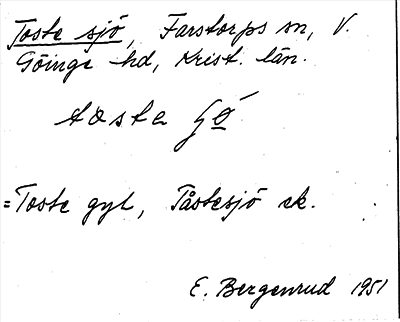 Toste sjö, Farstorps sn, V.
Göinge hd, Krist. län.
tåsta
=Toste gyl, Tåstesjö ek.
E. Bergenrud 1951